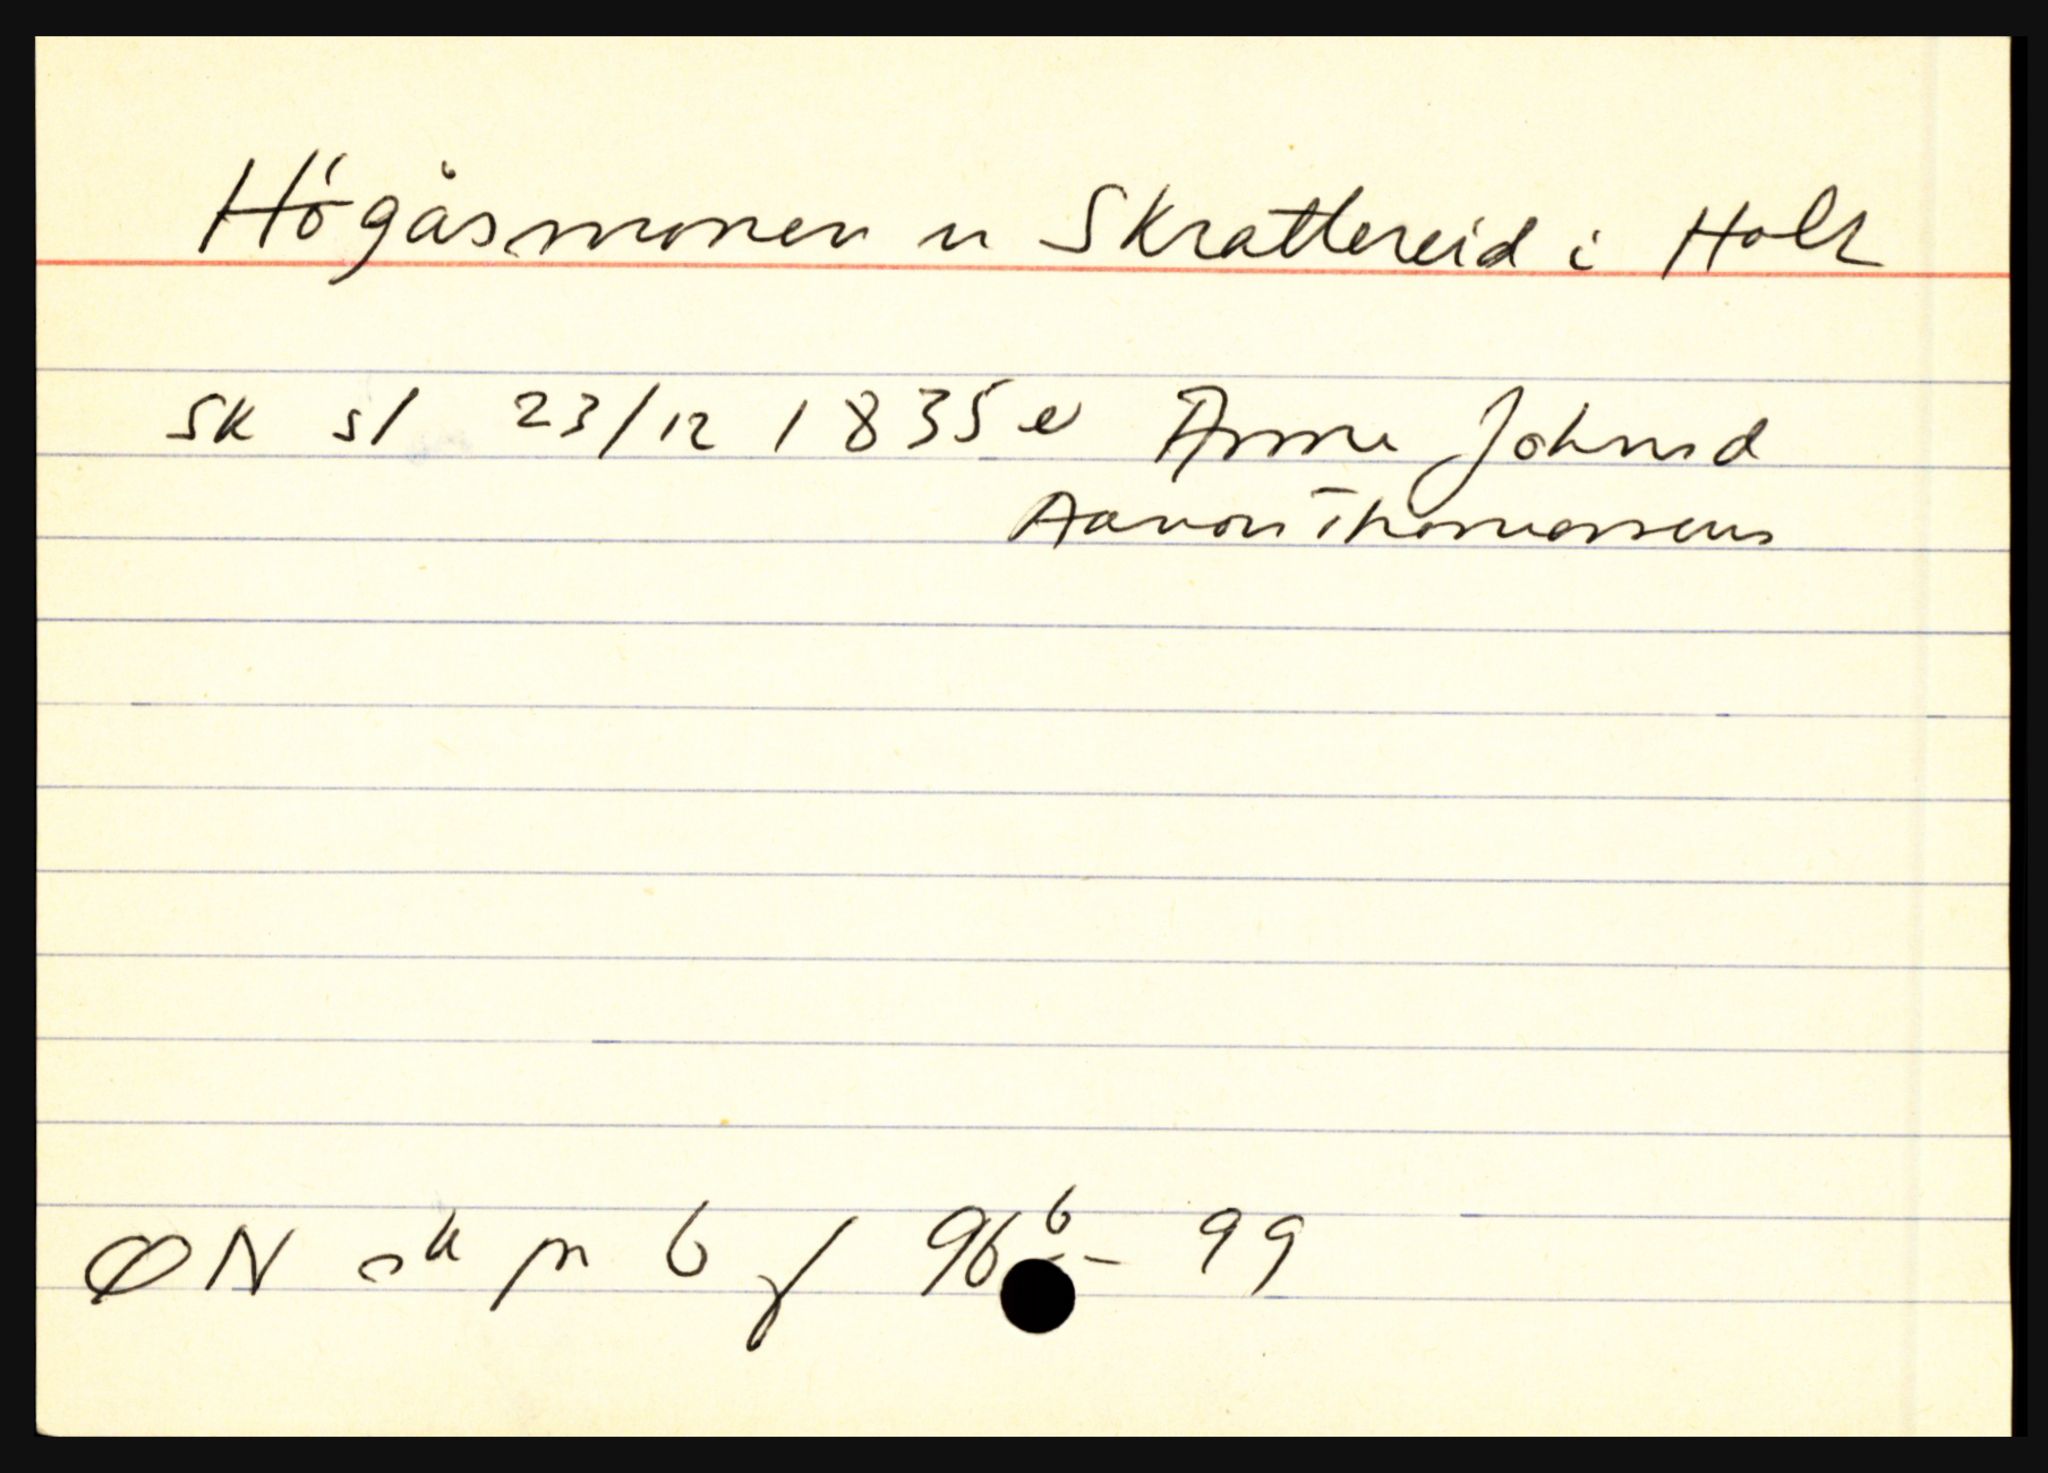 Högåsmonen u Skrattereid i Holt
sk sl 23/12 1835 e Anne Johnsd
Aanon Thomassens
ØN sk pr 6 f 96b - 99